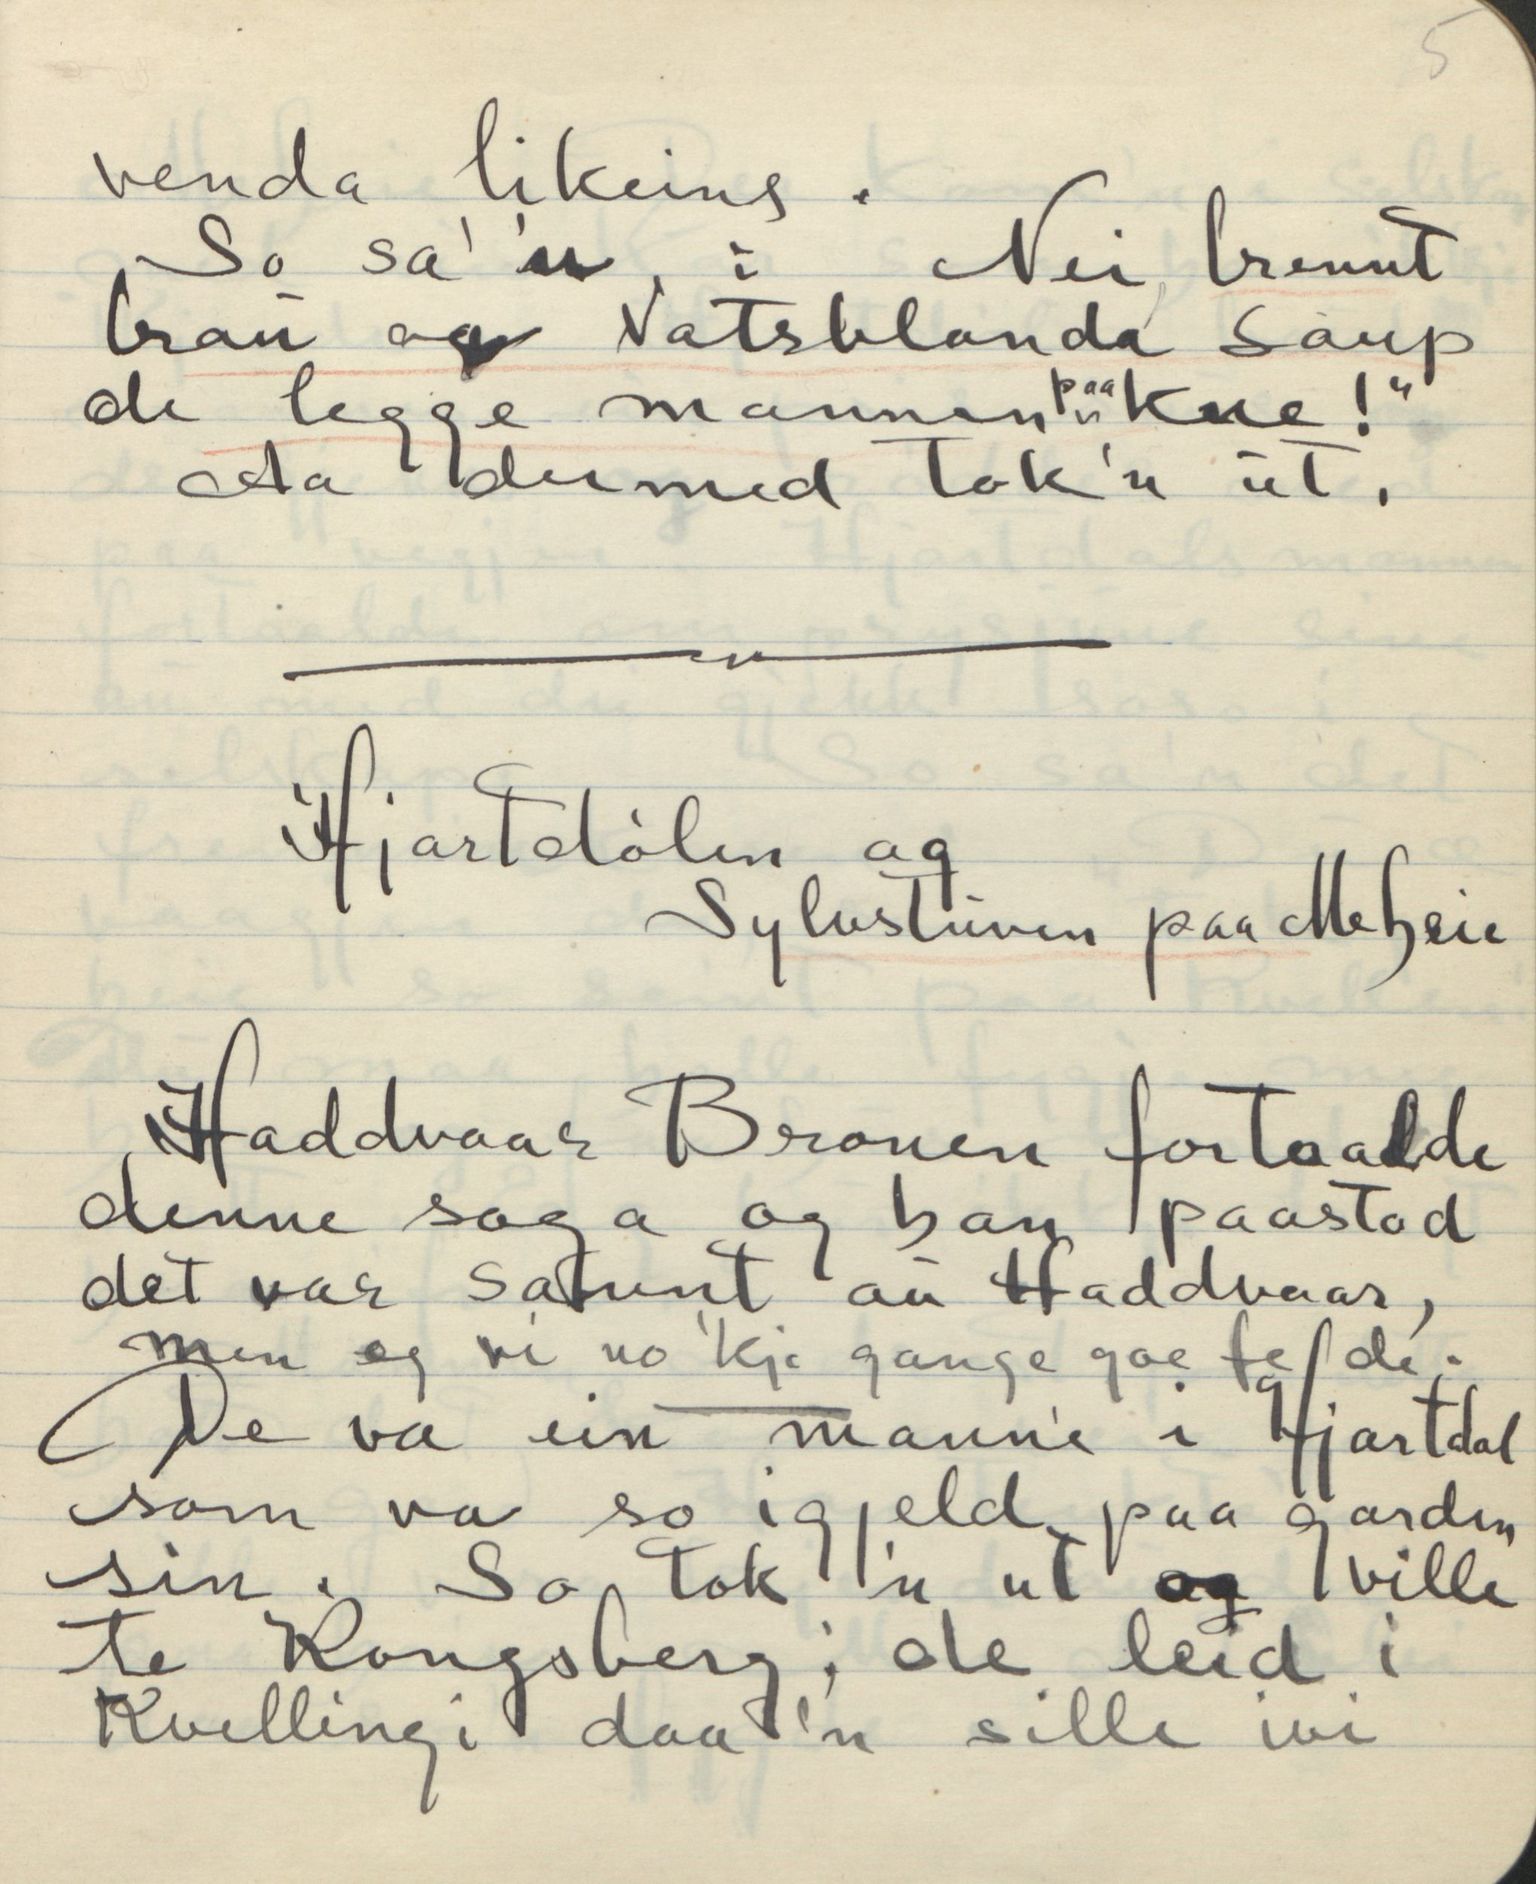 5
venda likeins.
So sa' 'n, : Nei, brennt
brau og Vatsblanda saup
de legge mannen paa kne!"
Aa dermed tok 'n ut.
Hjartdølen og
Sylvstuven paa Meheie
Haddvaar Bronen fortaalde
denne soga og han paastod
det var satunt au Haddvaar,
men eg vi no 'kje gange goe fe de.
De va ein manne i Hjartdal
som va so igjeld paa garden
sin. So tok 'n ut og ville
te Kongsberg; de leid i
Kvellingi daa 'n sille ivi